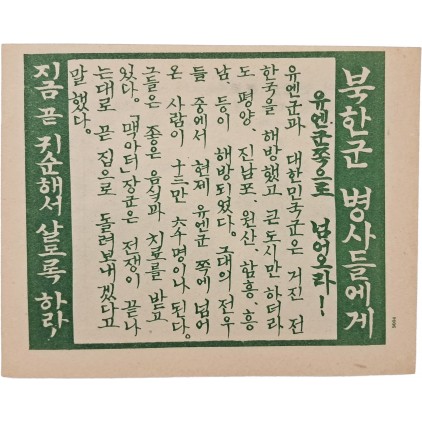 북한군 병사들에게
유엔군쪽으로 넘어오라!
유엔군과 대한민국군은 거진 전
한국을 해방했고 큰도시만 하더라
도 평양 진남포、원산、함흥、흥
남、등이 해방되었다。그대의 전우
들 중에서 현제 유엔군 쪽에 넘어
온 사람이 十三만 六千명이나 된다。
그들은 좋은 음식과 치료를 받고
있다。「맥아더」장군은 전쟁이 끝나
는대로 곧 집으로 돌려보내겠다고
말했다。
지금 곧 귀순해서 살도록 하라,